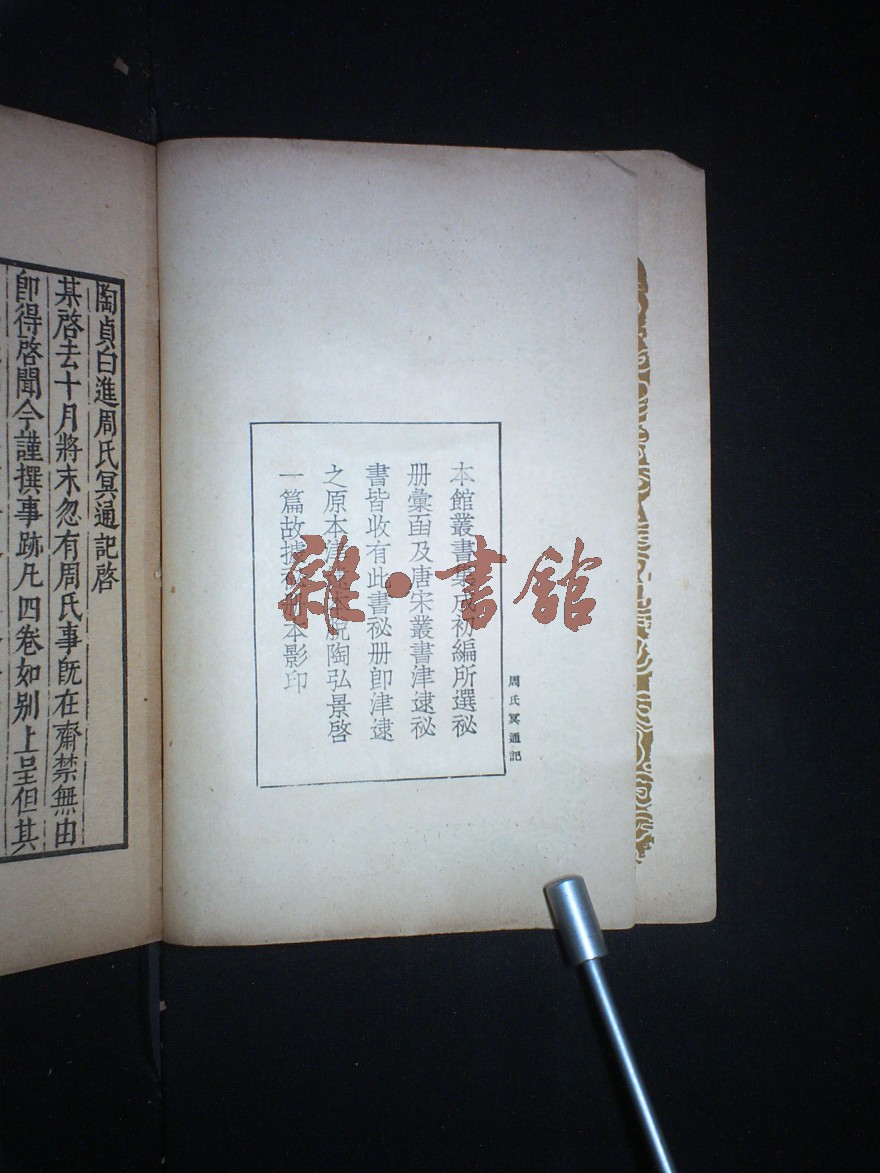 周氏冥通記
本館叢書集成初編所選祕
册彙函及唐宋叢書津逮祕
書皆收有此書祕册卽津逮
之原本津逮本脫陶弘景啓
一篇故據祕册本影印
雜·書館
陶貞白進周氏冥通記啓
某啓去十月將末忽有周氏事旣在齋禁無由
卽得啓聞今謹撰事跡凡四卷如别上呈但其